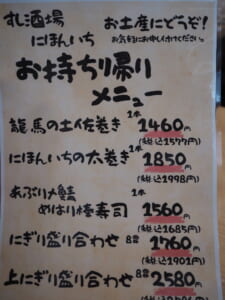 すし酒場
にほんいち
お土産にどうぞ!
お気軽にお申し付けください。
お持ち帰り
メニュー
龍馬の土佐巻き 1本 1460円
(税込1577円)
にほんいちの太巻き 1本 1850円
(税込1998円)
あぶり〆鯖
めはり棒寿司 1本 1560円
(税込1685円)
にぎり盛り合わせ 8カン 1760円
(税込1901円)
上にぎり盛り合わせ 8カン 2580円